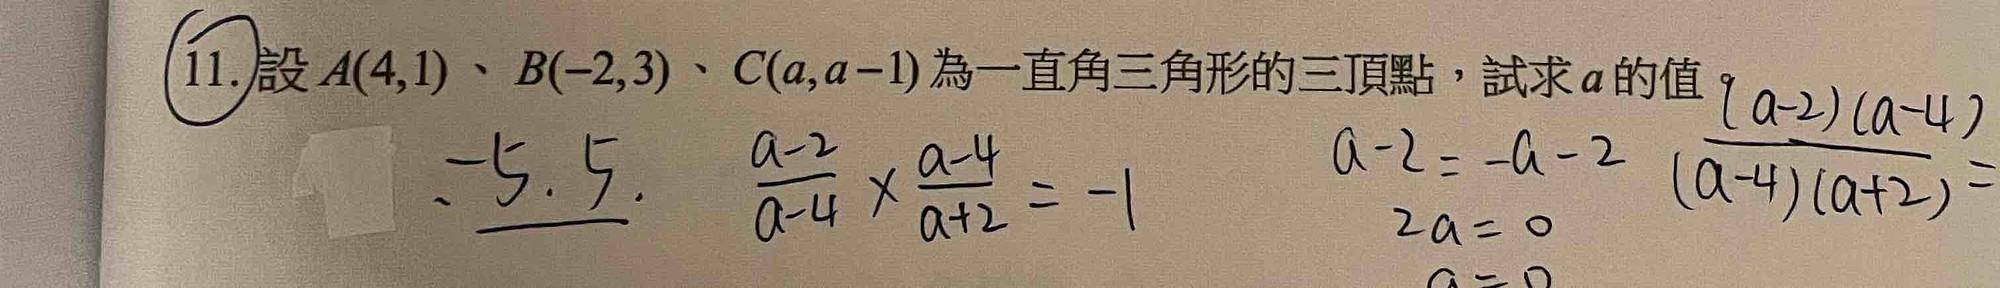 11. 設 A(4,1)、B(−2,3)、C(a,a−1) 為一直角三角形的三頂點，試求 a 的值
−5. 5.
a-2/a-4 × a-4/a+2 = -1
a-2 = -a-2
2a = 0
a = 0
(a-2)(a-4)/(a-4)(a+2) =